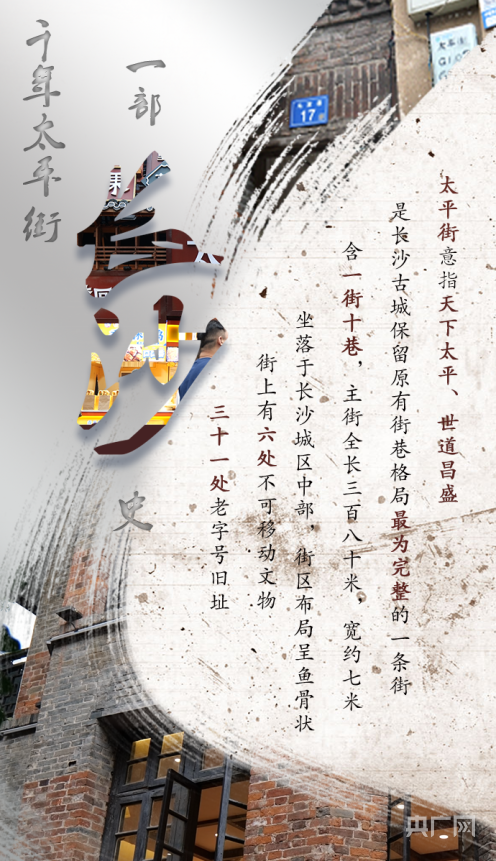 千年太平街
一部
长沙
史
太平街意指天下太平、世道昌盛
是长沙古城保留原有街巷格局最为完整的一条街
含一街十巷，主街全长三百八十米，宽约七米
坐落于长沙城区中部，街区布局呈鱼骨状
街上有六处不可移动文物
三十一处老字号旧址
太平街
17
央广网